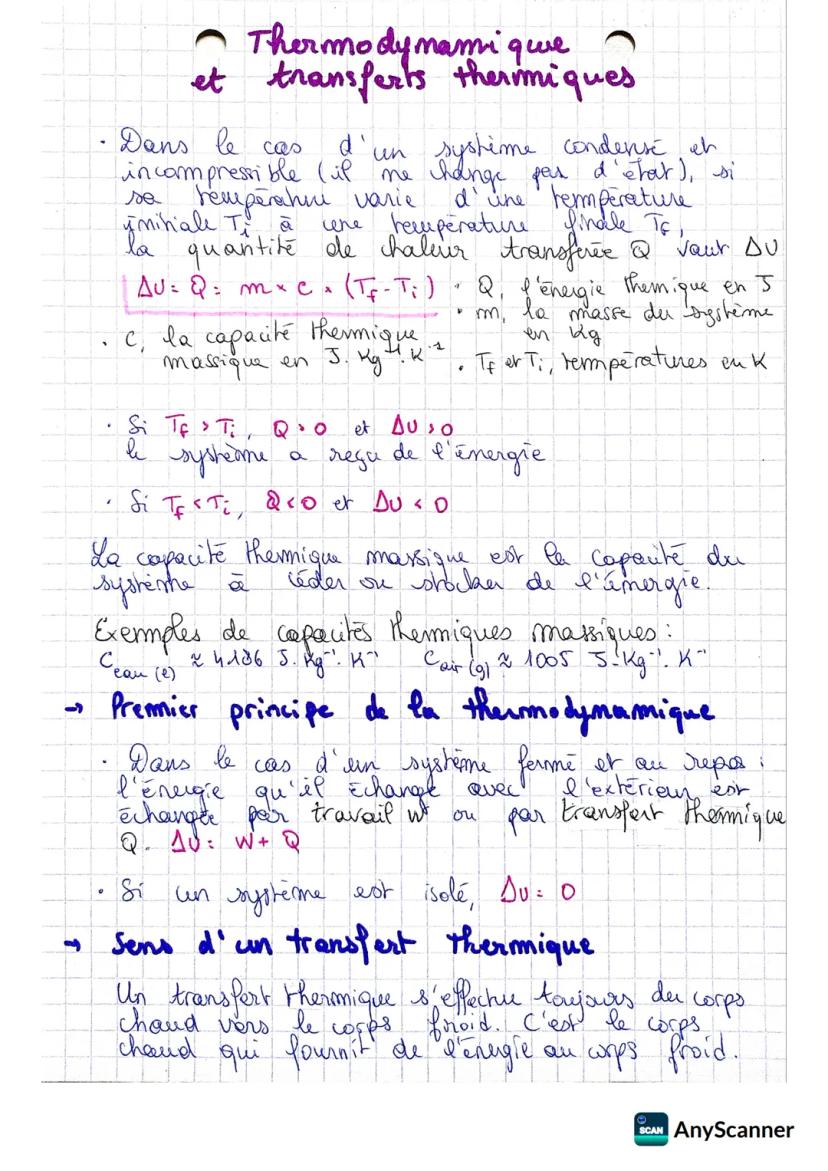 Thermodynamique
et transferts thermiques
· Dans le cas d'un système condensé et
incompressible (il ne change pas d'état), si
sa température varie d'une température
initiale Ti à une température finale Tf,
la quantité de chaleur transférée Q vaut ΔU
ΔU = Q = m × c × (Tf - Ti)
· Q, l'énergie themique en J
· m, la masse du système
en kg
· C, la capacité thermique
massique en J. Kg⁻¹. K⁻¹
· Tf et Ti, températures en K
· Si Tf > Ti, Q > 0 et ΔU > 0
le système a reçu de l'énergie
· Si Tf < Ti, Q < 0 et ΔU < 0
La capacité thermique massique est la capacité du
système à céder ou stocker de l'énergie.
Exemples de capacités thermiques massiques :
Ceau (l) ≈ 4186 J. Kg⁻¹. K⁻¹ Cair (g) ≈ 1005 J. Kg⁻¹. K⁻¹
→ Premier principe de la thermodynamique
· Dans le cas d'un système fermé et au repos :
l'énergie qu'il échange avec l'extérieur est
échangée par travail W ou par transfert thermique
Q. ΔU = W + Q
· Si un système est isolé, ΔU = 0
→ Sens d'un transfert thermique
Un transfert thermique s'effectue toujours du corps
chaud vers le corps froid. C'est le corps
chaud qui fournit de l'énergie au corps froid.
SCAN AnyScanner